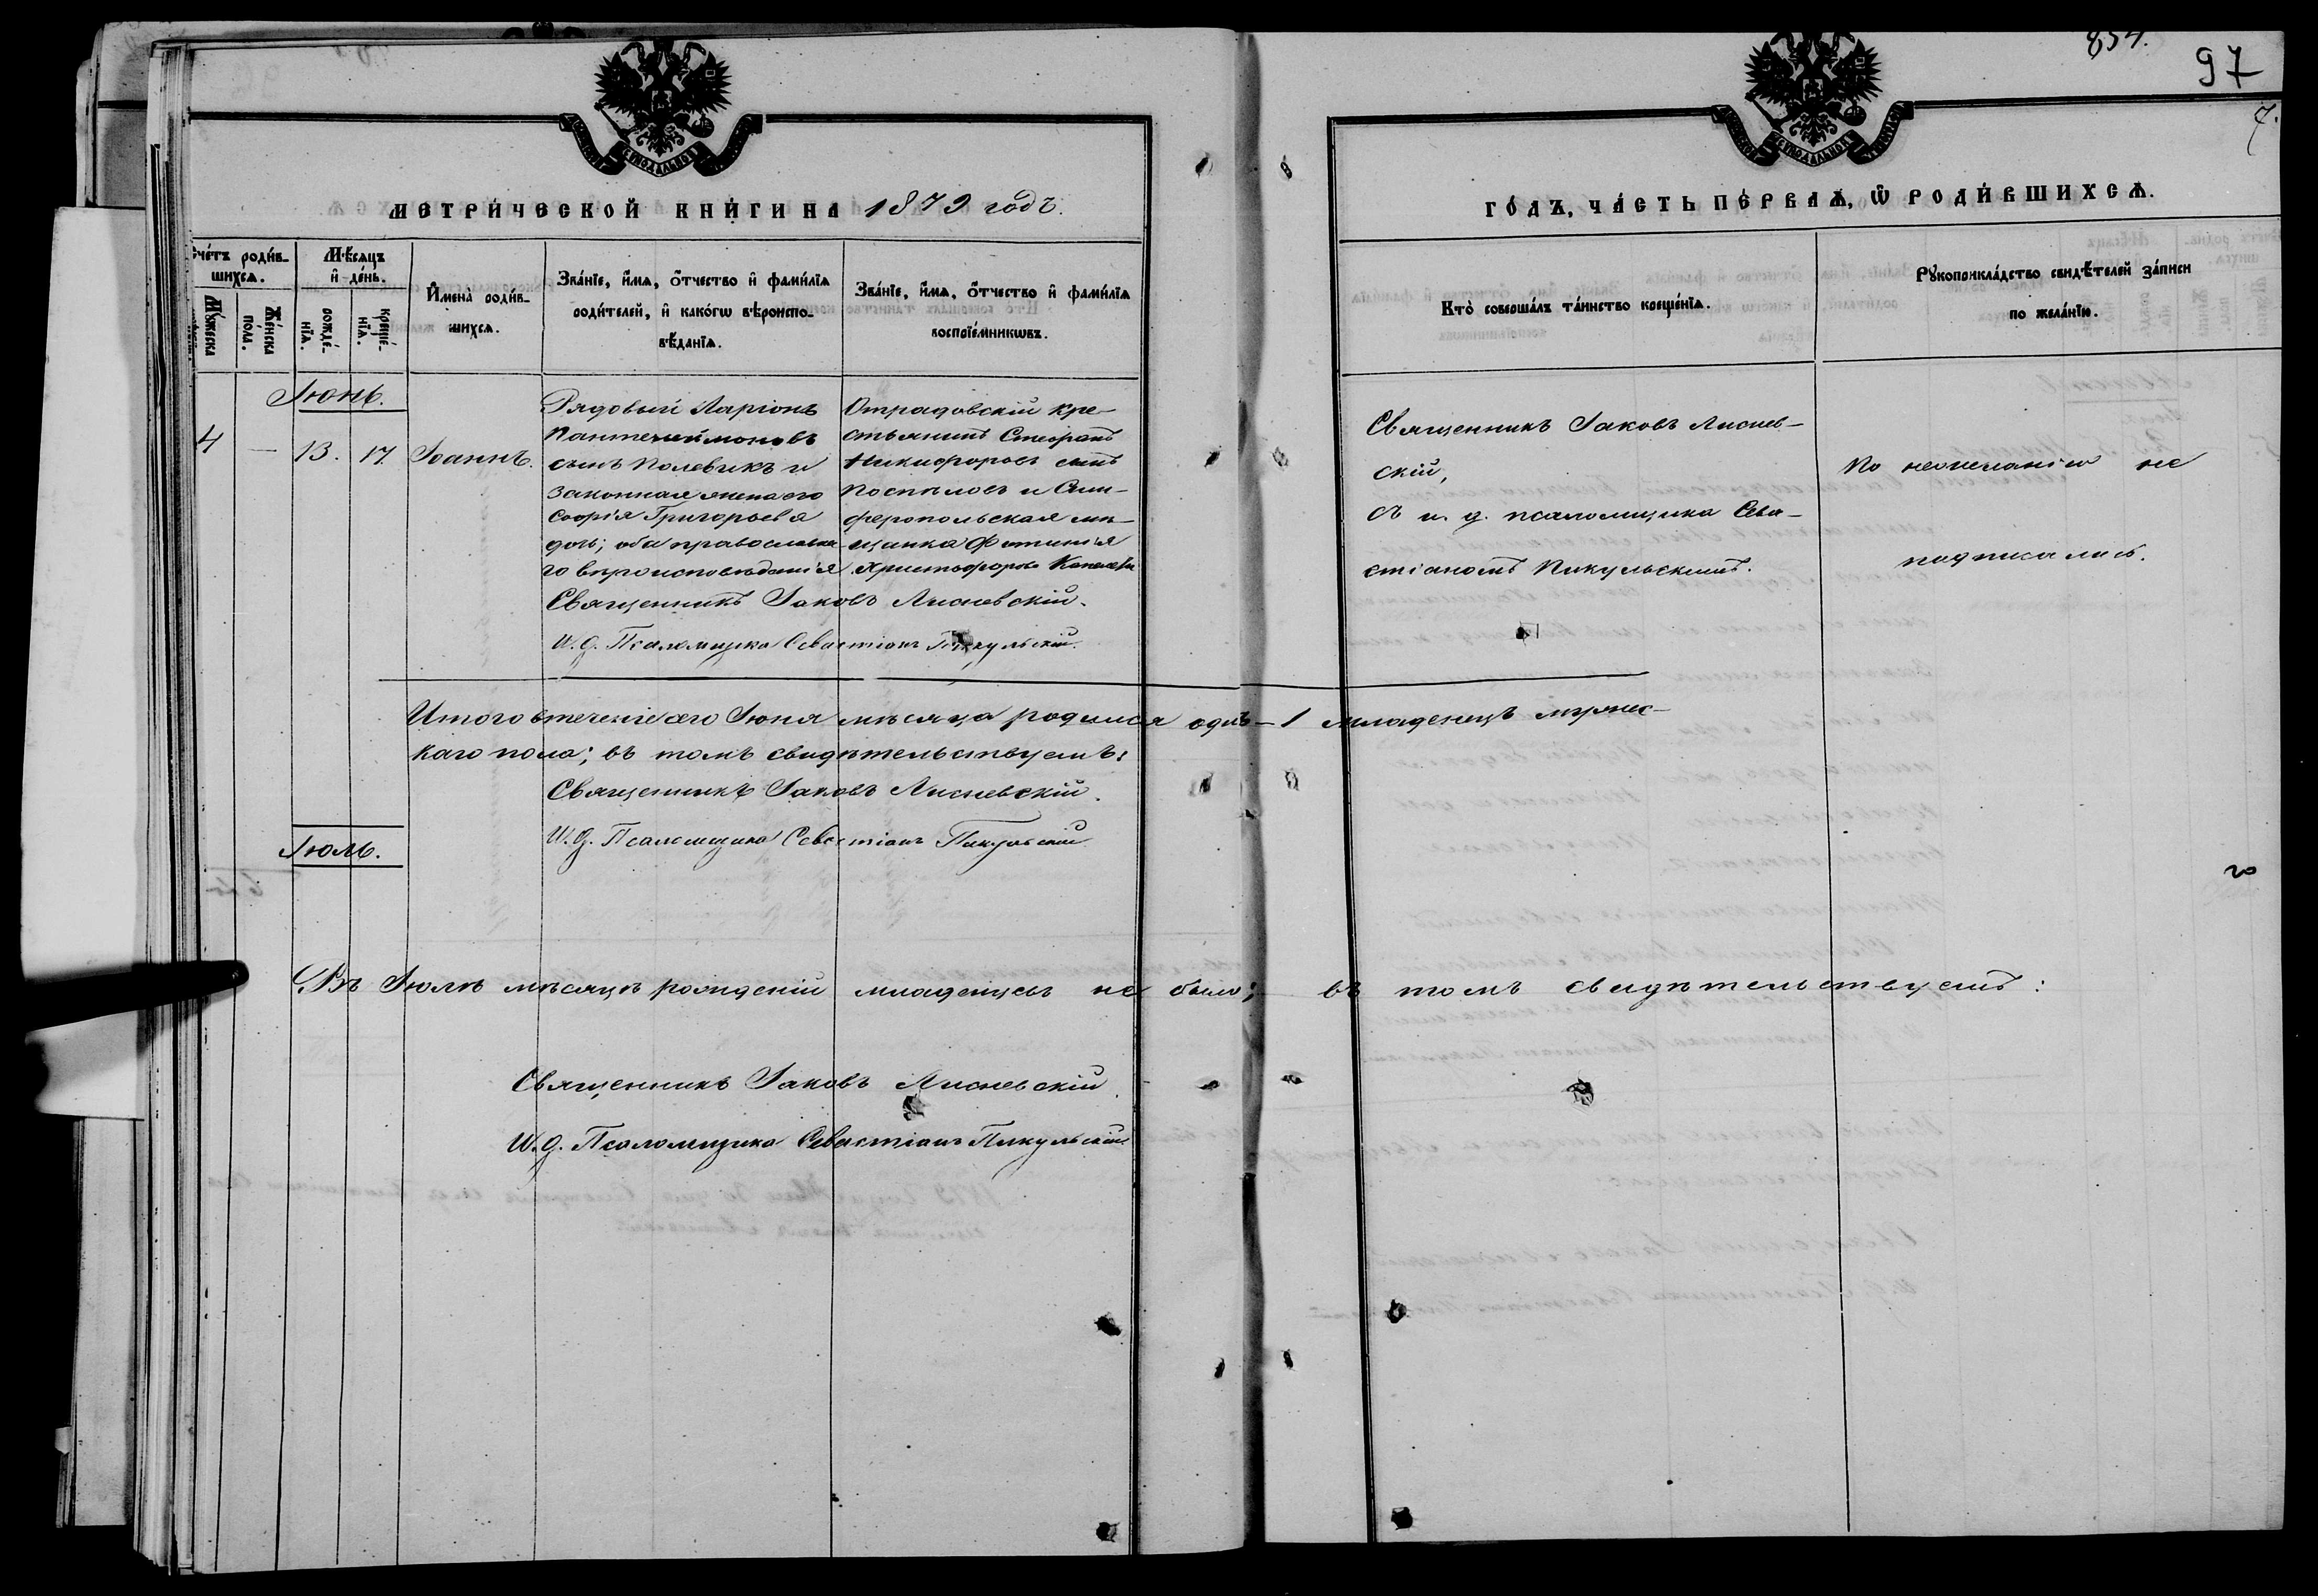 854.
97
7.
МЕТРИ́ЧЕСКОЙ КНИ́ГИ НА 1879 годъ.
ГО́ДЪ, ЧА́СТЬ ПЕ́РВАѦ, Ѡ҆ РОДИ́ВШИХСѦ.
Сче́тъ роди́в-
шихсѧ.
Мꙋ́жеска
Же́нска
пола.
Мѣ́сѧцъ
и҆ де́нь.
рожде́-
нїѧ.
креще́-
нїѧ.
И҆мена̀ роди́в-
шихсѧ.
Зва́нїе, и҆́мѧ, ѻ҆́тчество и҆ фами́лїѧ
роди́телей, и҆ како́гѡ вѣроиспо-
вѣ́данїѧ.
Зва́нїе, и҆́мѧ, ѻ҆́тчество и҆ фами́лїѧ
воспрїе́мникѡвъ.
Кто̀ соверша́лъ та́инство креще́нїѧ.
Рꙋкоприкла́дство свидѣ́телей за́писи
по жела́нїю.
Іюнь.
4 — 13. 17. Іоаннъ.
Рядовый Ларіонъ
Пантелеймоновъ
сынъ Полевикъ и
законная жена его
Софрія Григорьева
дочь; оба православна-
го вѣроисповѣданія.
Отрадовскій кре-
стьянинъ Стефанъ
Никифоровъ сынъ
Поспѣловъ и Сим-
феропольская мѣ-
щанка Фотинія
Христофорова
Священникъ Іаковъ Лисневскій.
И. д. Псаломщика Севастіанъ Пикульскій.
Священникъ Іаковъ Лиснев-
скій,
съ и. д. псаломщика Сева-
стіаномъ Пикульскимъ.
По нежеланію не
подписались.
Итого втеченіе сего Іюня мѣсяца родился одинъ — 1 младенецъ мужес-
каго пола; въ томъ свидѣтельствуемъ:
Священникъ Іаковъ Лисневскій.
И. д. Псаломщика Севастіанъ Пикульскій
Іюль.
Въ Іюлѣ мѣсяцѣ рожденій младенцевъ не было; въ томъ свидѣтельствуемъ:
Священникъ Іаковъ Лисневскій.
И. д. Псаломщика Севастіанъ Пикульскій